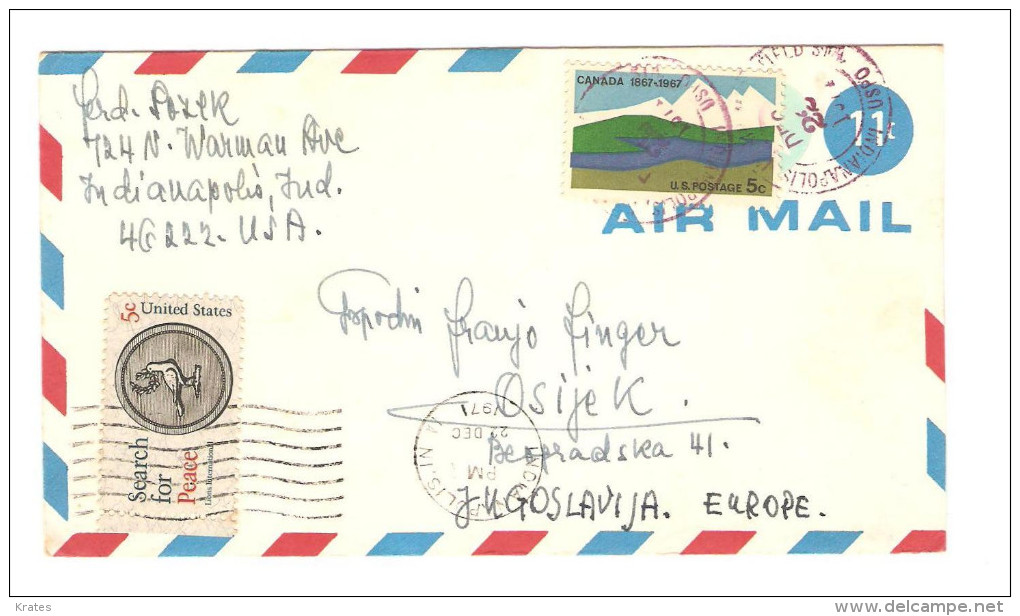 Ferd. Pozek
724 N. Warman Ave
Indianapolis, Ind.
46222. USA.
CANADA 1867-1967
U.S. POSTAGE 5c
11¢
AIR MAIL
INDIANAPOLIS
USPO
DEC
22
5c United States
Search
for
Peace
Lions International
Gospodin Franjo Finger
Osijek.
Beogradska 41.
JUGOSLAVIJA. EUROPE.
INDIANAPOLIS IN
PM
22 DEC
1971
Krates
delcampe.net